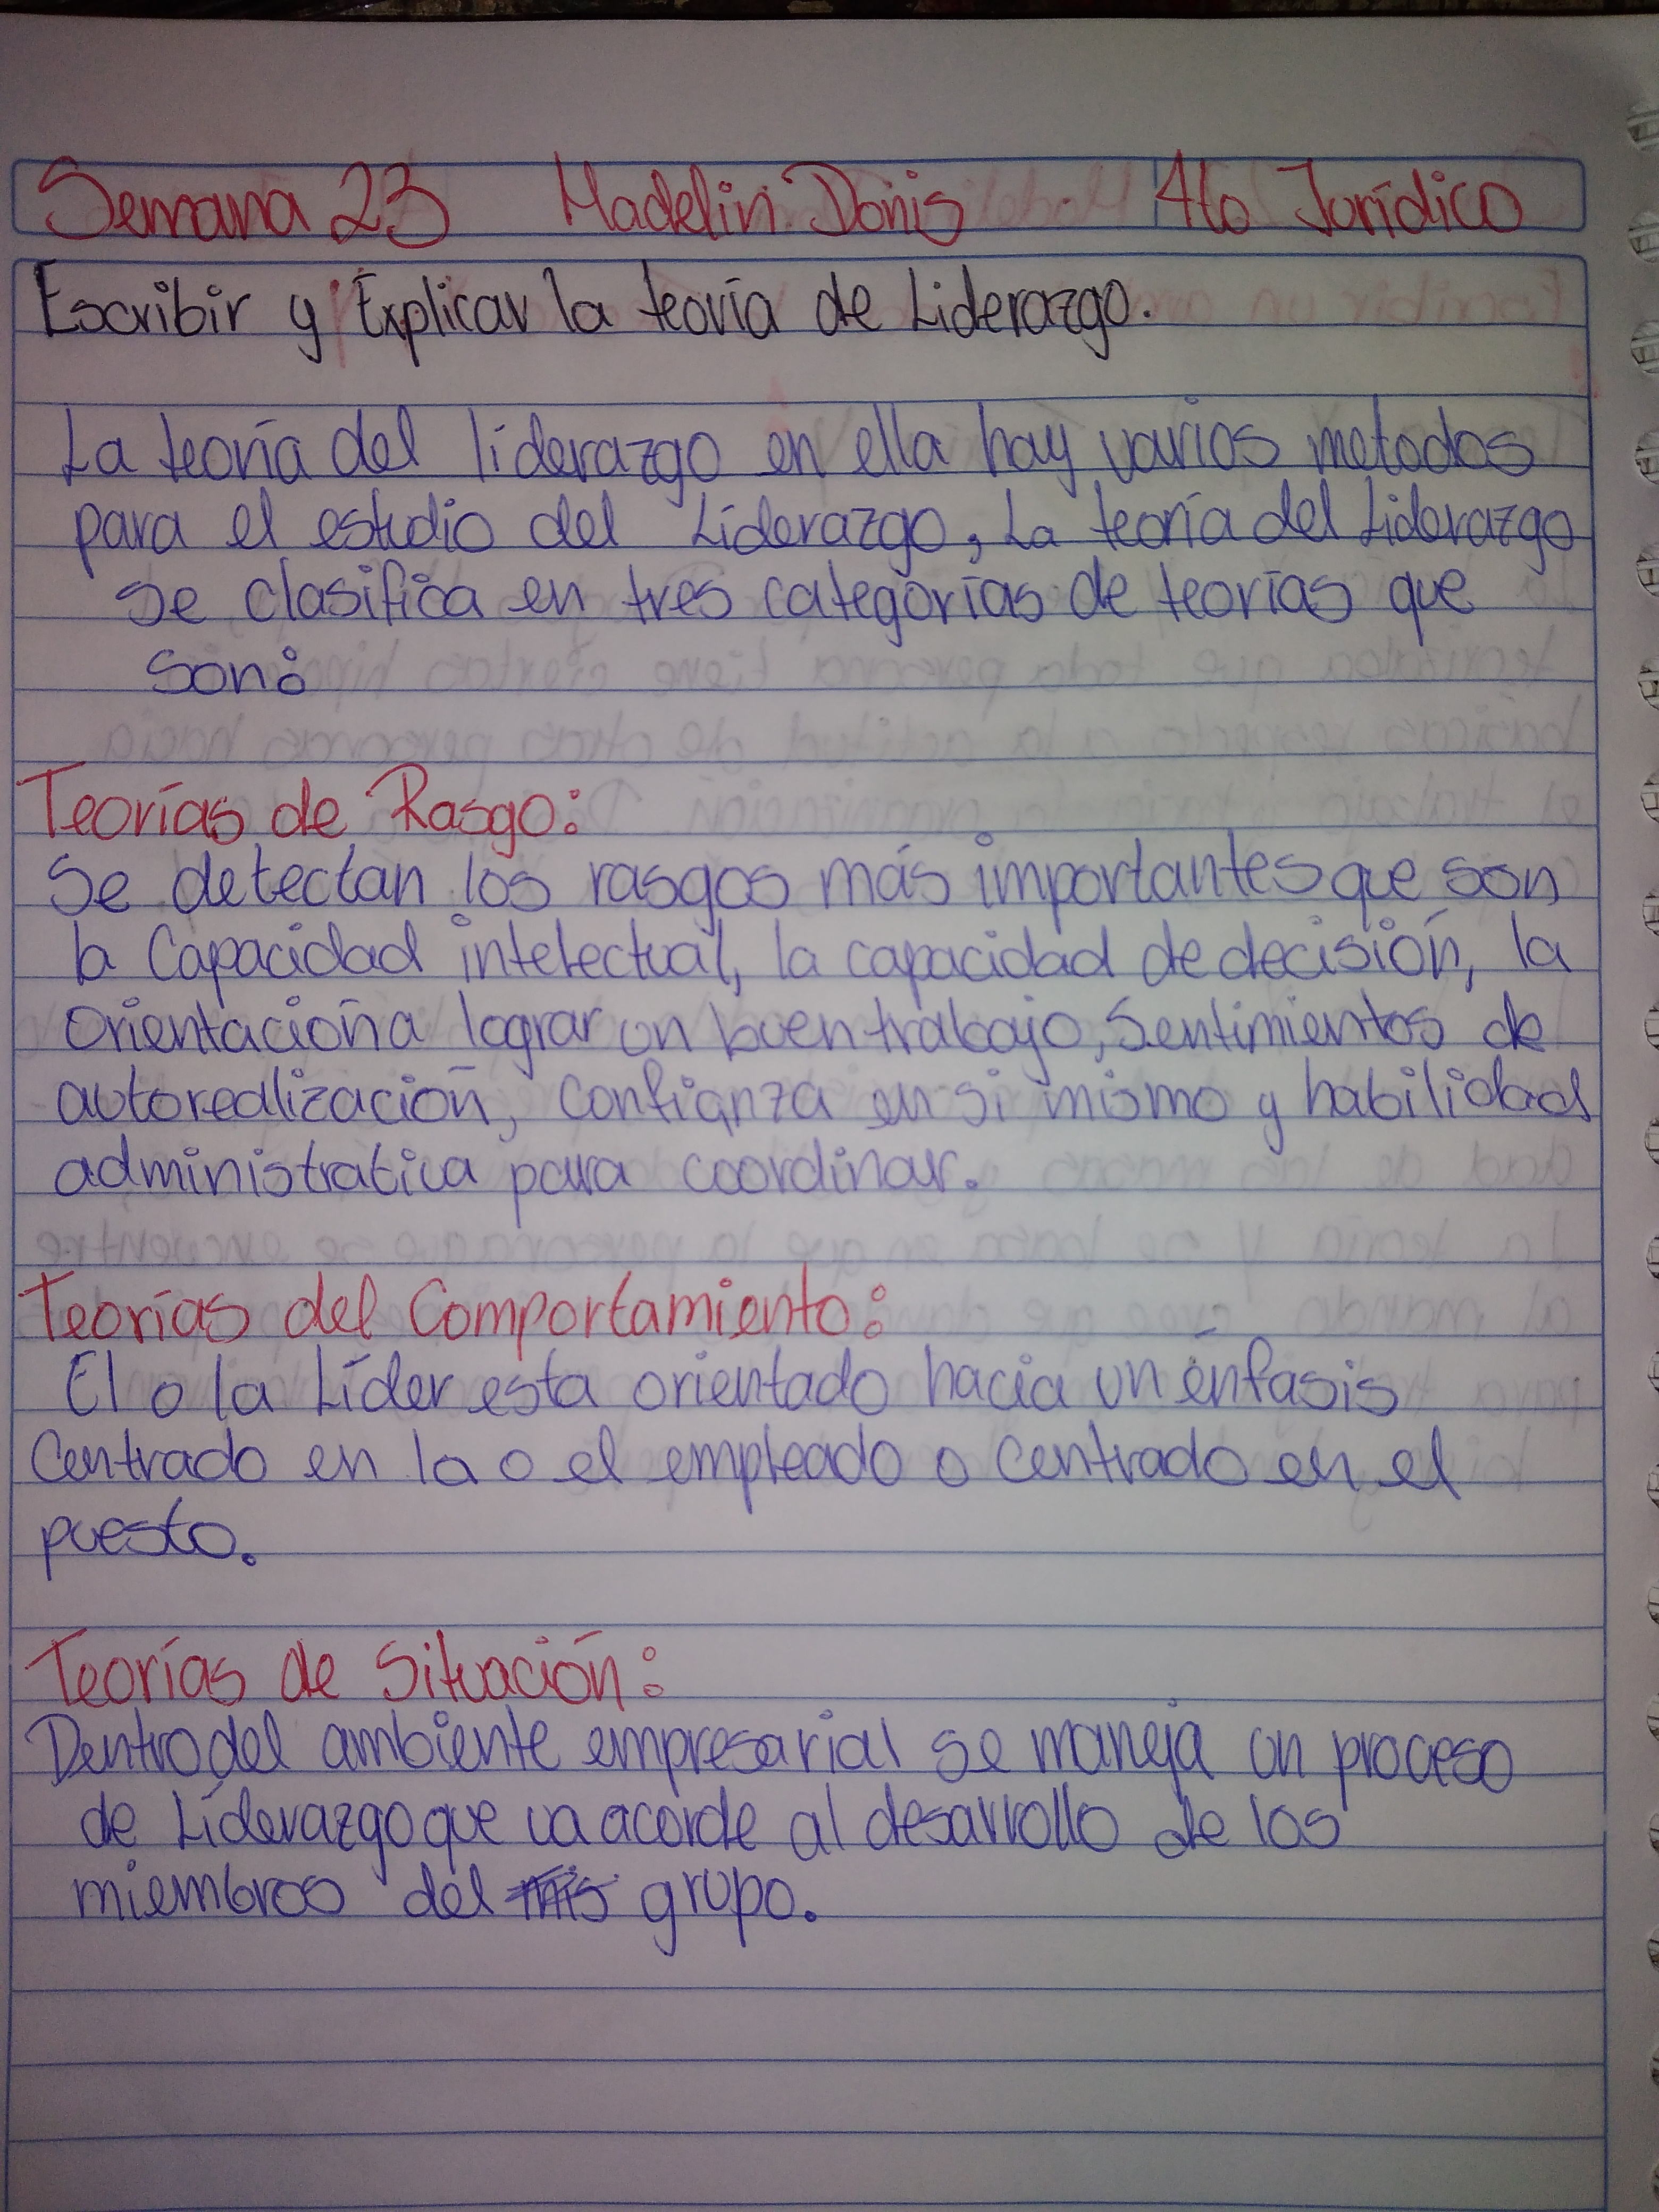 Semana 23 Madelin Donis 4to Jurídico
Escribir y Explicar la teoría de Liderazgo.
La teoría del liderazgo en ella hay varios metodos
para el estudio del Liderazgo, La teoría del Liderazgo
se clasifica en tres categorías de teorías que
son:
Teorías de Rasgo:
Se detectan los rasgos más importantes que son
la Capacidad intelectual, la capacidad de decisión, la
orientación a lograr un buen trabajo, Sentimientos de
autorealización, Confianza en si mismo y habilidad
administrativa para coordinar.
Teorías del Comportamiento:
El o la Líder esta orientado hacia un énfasis
Centrado en la o el empleado o centrado en el
puesto.
Teorías de Situación:
Dentro del ambiente empresarial se maneja un proceso
de Liderazgo que va acorde al desarrollo de los
miembros del grupo.